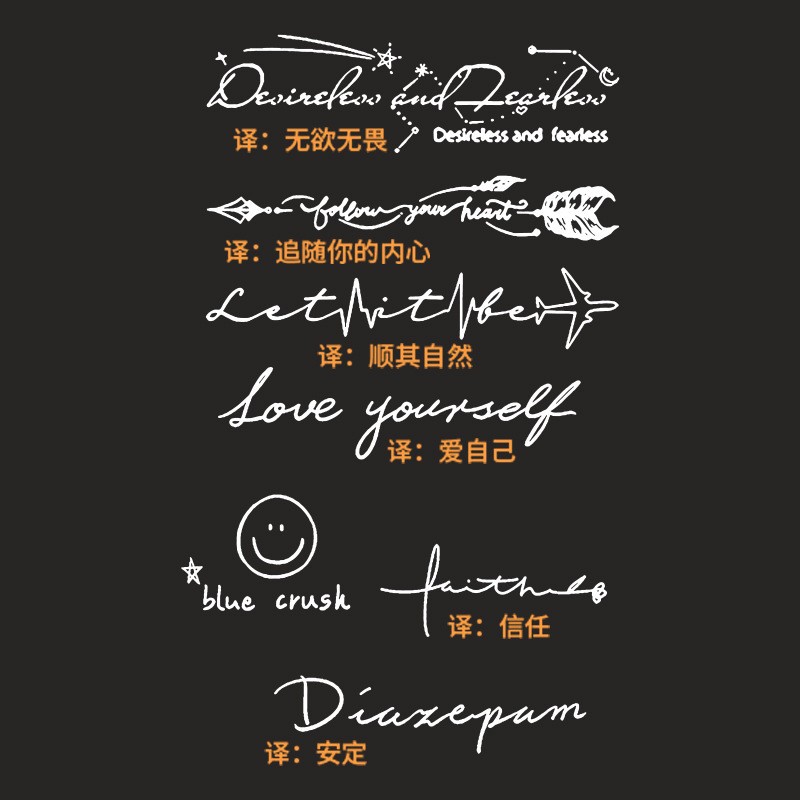 Desireless and Fearless
译：无欲无畏 Desireless and fearless
follow your heart
译：追随你的内心
Let it be
译：顺其自然
Love yourself
译：爱自己
blue crush
faith
译：信任
Diazepam
译：安定